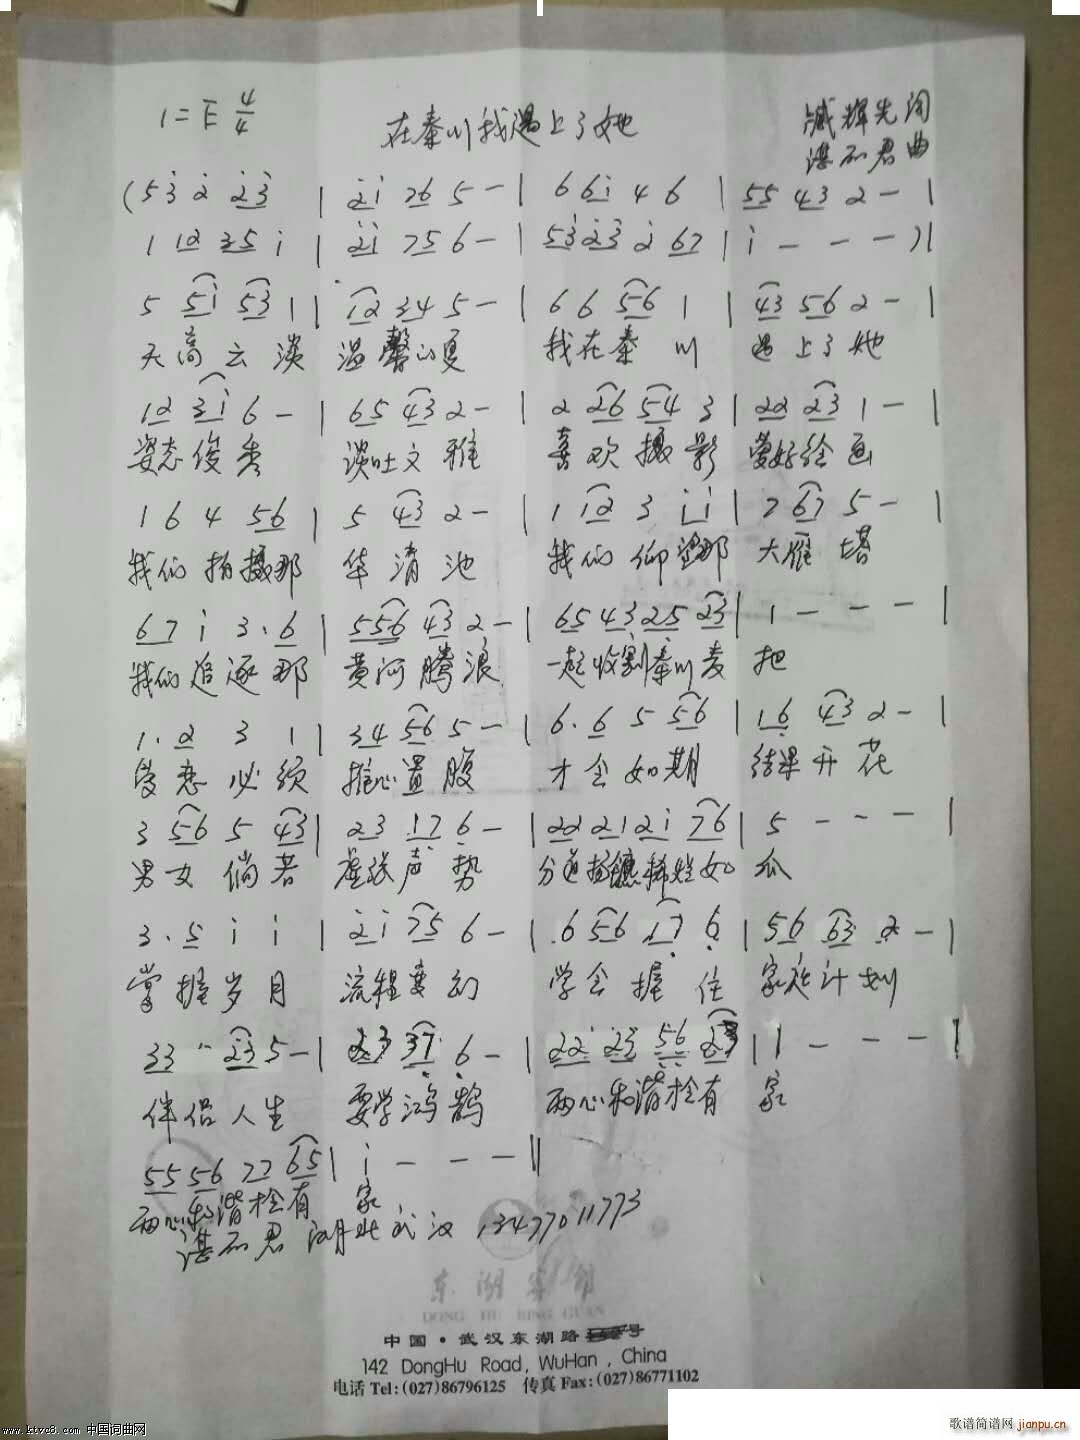 1=E 4/4
在秦川我遇上了她
臧辉先 词
谌不君 曲
(5 3 2 23 | 21 76 5 - | 6 61 4 6 | 55 43 2 - |
1 12 35 1 | 21 75 6 - | 53 23 2 67 | 1 - - - )|
5 51 53 1 | 12 34 5 - | 6 6 56 1 | 43 56 2 - |
天高云淡 温馨的夏 我在秦川 遇上了她
12 31 6 - | 65 43 2 - | 2 26 54 3 | 22 23 1 - |
姿态俊秀 谈吐文雅 喜欢摄影 爱好绘画
1 6 4 56 | 5 43 2 - | 1 12 3 11 | 7 67 5 - |
我们拍摄那 华清池 我们仰望那 大雁塔
67 1 3. 6 | 556 43 2 - | 65 43 25 23 | 1 - - - |
我们追逐那 黄河腾浪 一起收割秦川麦 把
1. 2 3 1 | 34 56 5 - | 6. 6 5 56 | 16 43 2 - |
爱恋必须 推心置腹 才会如期 结果开花
3 56 5 43 | 23 17 6 - | 22 21 21 76 | 5 - - - |
男女倘若 虚张声势 分道扬镳稀烂如 瓜
3. 5 1 1 | 21 75 6 - | 6 56 17 6 | 56 63 2 - |
掌握岁月 流程变幻 学会握住 家庭计划
33 23 5 - | 23 37 6 - | 22 23 56 23 | 1 - - - |
伴侣人生 要学鸿鹄 两心和谐才会有 家
55 56 77 65 | 1 - - - ||
两心和谐才会有 家
谌不君 湖北武汉 13477011773
东湖宾馆
DONG HU BING GUAN
中国·武汉东湖路
142 DongHu Road, WuHan, China
电话 Tel:(027)86796125 传真 Fax:(027)86771102
www.ktvc8.com 中国词曲网
歌谱简谱网 jianpu.cn